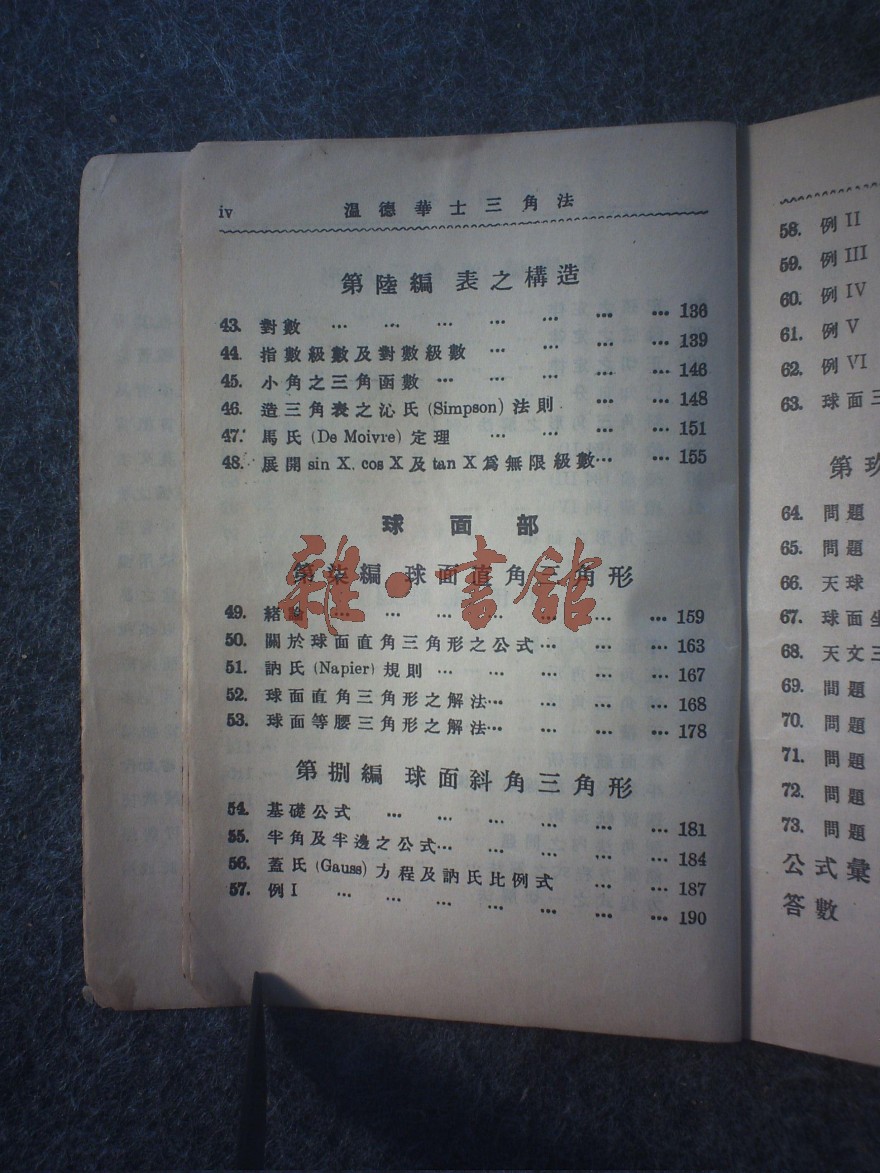 iv 溫德華士三角法
第陸編 表之構造
43. 對數 … … … … … … … 136
44. 指數級數及對數級數 … … … … 139
45. 小角之三角函數 … … … … … 146
46. 造三角表之沁氏 (Simpson) 法則 … … 148
47. 馬氏 (De Moivre) 定理 … … … … 151
48. 展開 sin X, cos X 及 tan X 爲無限級數 … … 155
球面部
第柒編 球面直角三角形
雜·書館
49. 緒論 … … … … … … … 159
50. 關於球面直角三角形之公式 … … … 163
51. 訥氏 (Napier) 規則 … … … … … 167
52. 球面直角三角形之解法 … … … … 168
53. 球面等腰三角形之解法 … … … … 178
第捌編 球面斜角三角形
54. 基礎公式 … … … … … … 181
55. 半角及半邊之公式 … … … … … 184
56. 蓋氏 (Gauss) 方程及訥氏比例式 … … 187
57. 例 I … … … … … … … 190
58. 例 II
59. 例 III
60. 例 IV
61. 例 V
62. 例 VI
63. 球面三
第玖
64. 問題
65. 問題
66. 天球
67. 球面坐
68. 天文三
69. 問題
70. 問題
71. 問題
72. 問題
73. 問題
公式彙
答數